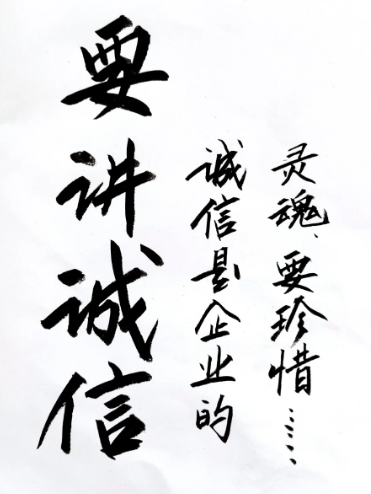 要讲诚信
诚信是企业的
灵魂、要珍惜……